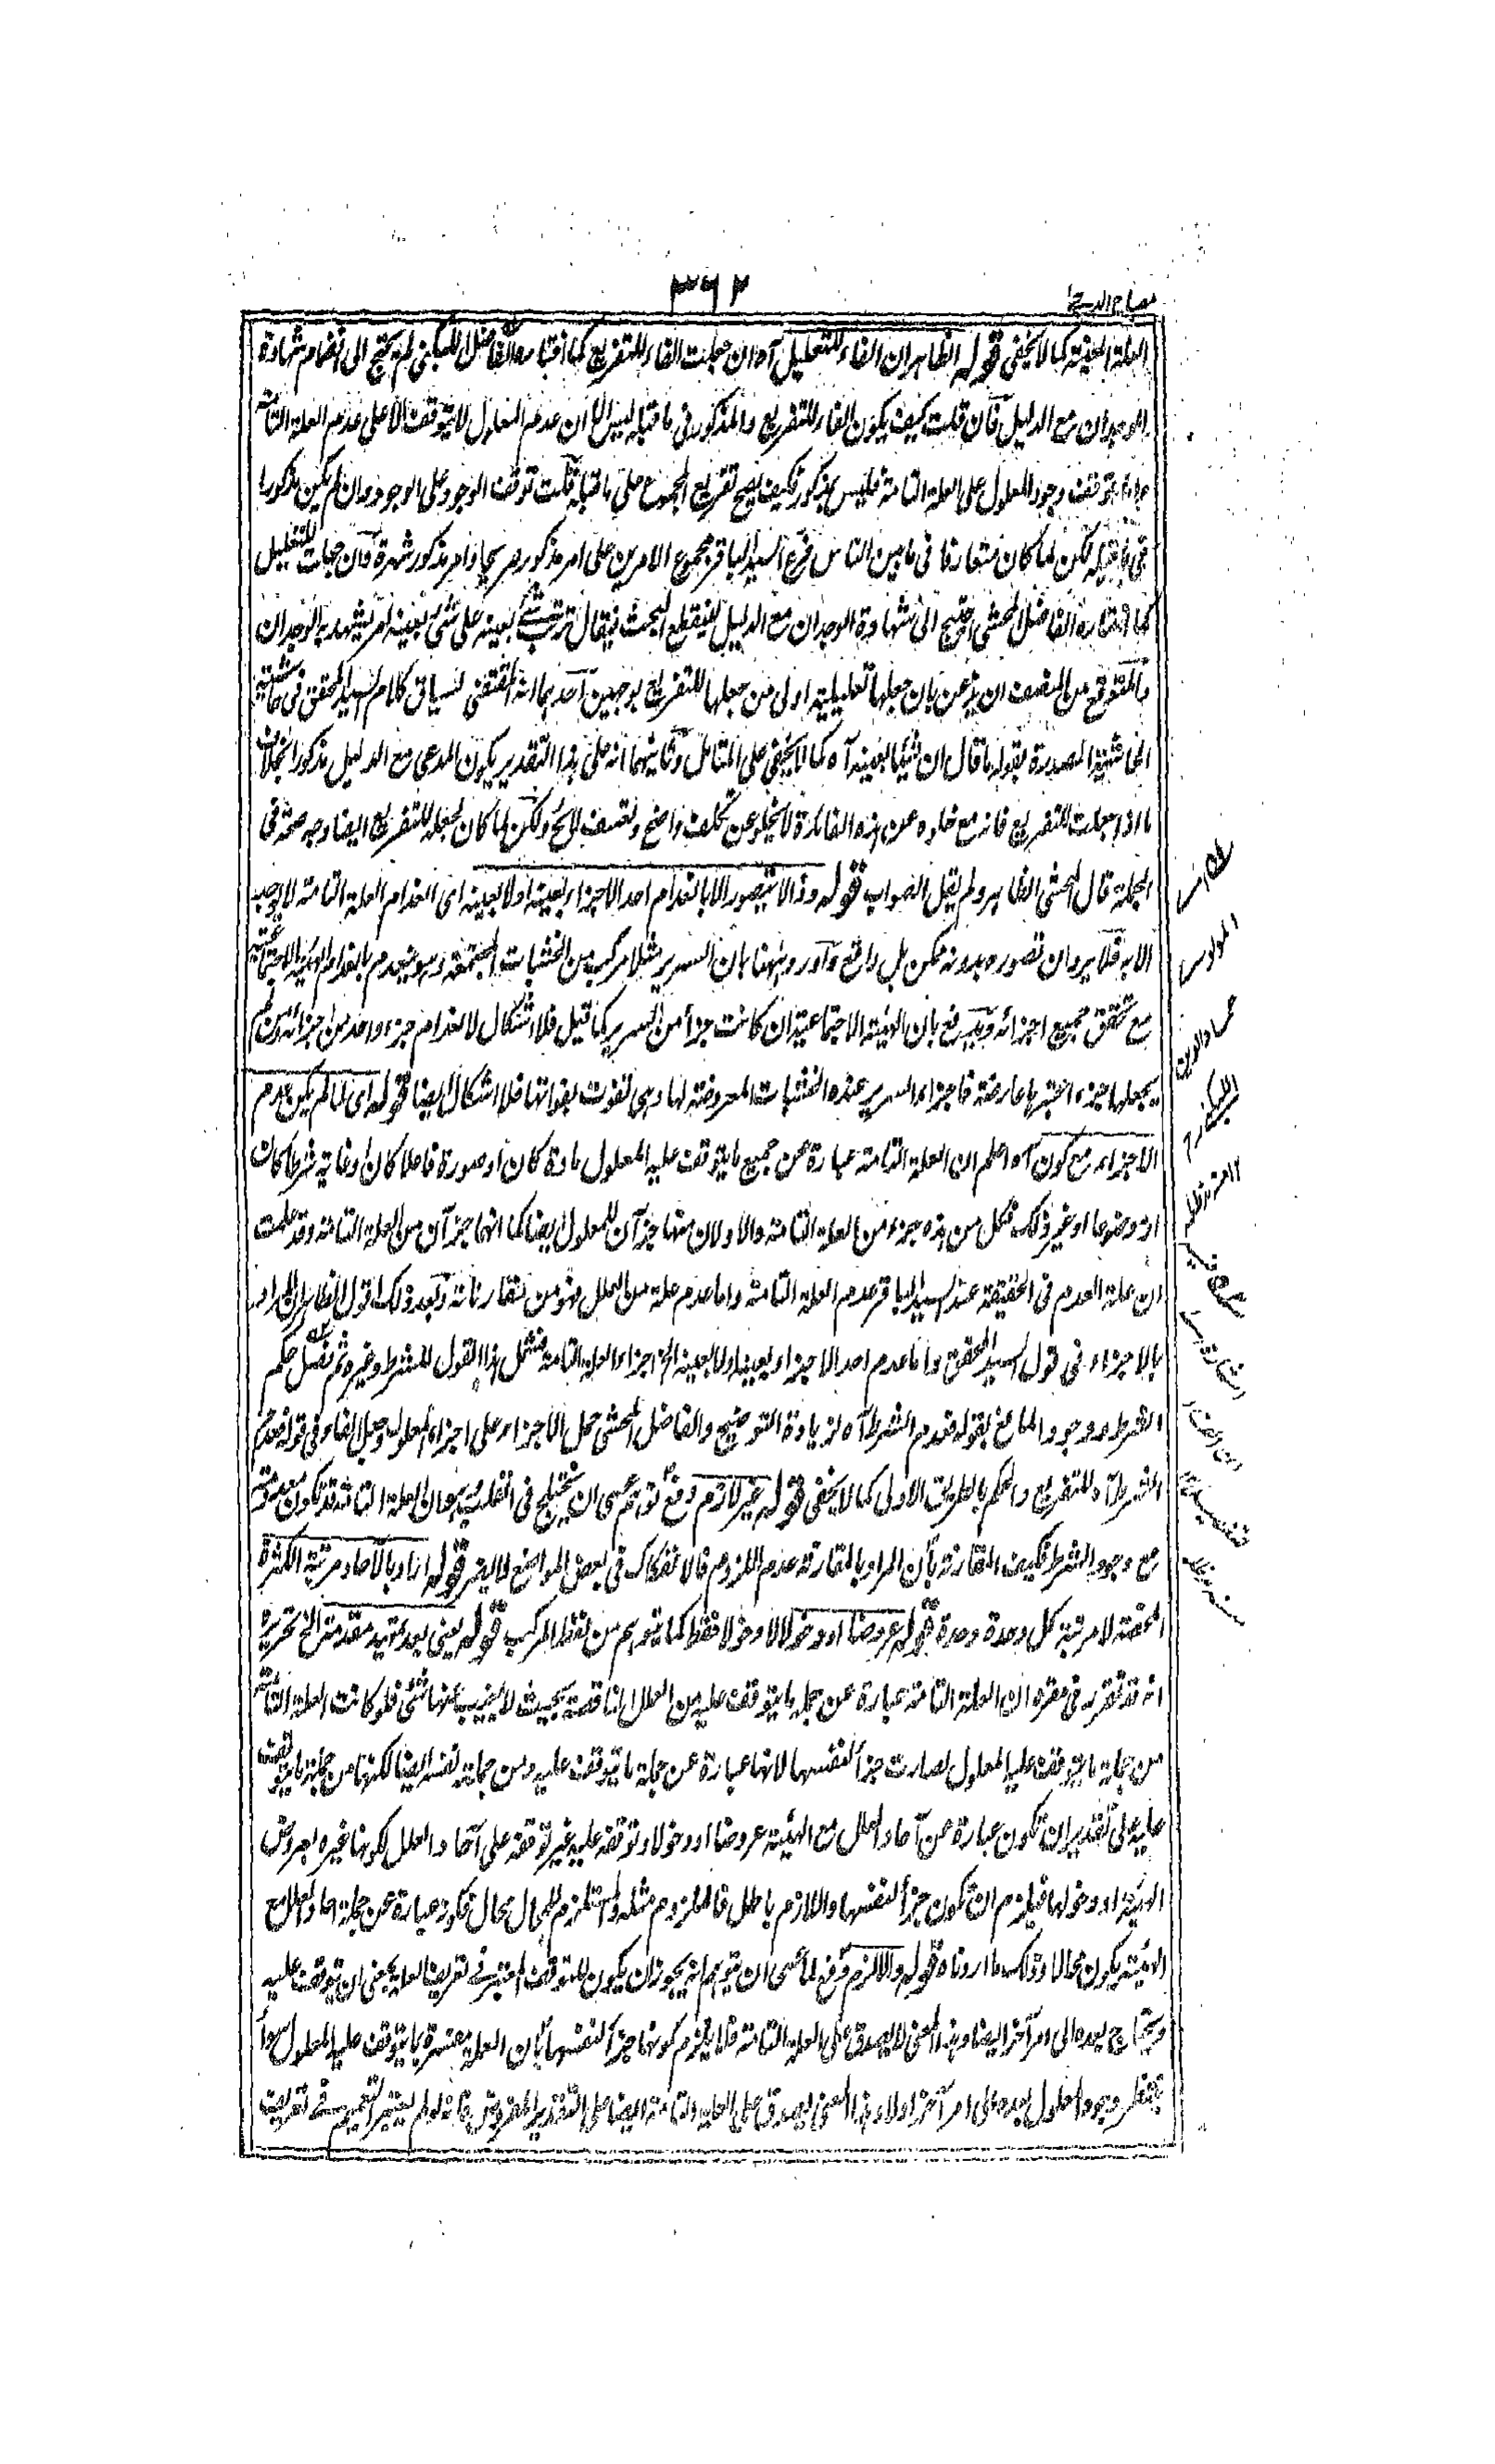 ٣٦٢
مصباح الدجى
العلة المعينة كما لا يخفى قوله الظاهر ان الفاء للتعليل آه ان جعلت الفاء للتفريع كما اختاره الفاضل اللبكني لم يحتج الى انضمام شهادة
الوجدان مع الدليل فان قلت كيف يكون الفاء للتفريع والمذكور في ما قبله ليس الا ان عدم المعلول لا يتوقف الا على عدم العلة التامة
واما توقف وجود المعلول على العلة التامة فليس بمذكور فكيف يصح تفريع المجموع على ما قبله قلت توقف الوجود على الوجود وان لم يكن مذكورا
في ما قبله لكن لما كان متعارفا في ما بين الناس فرع السيد الباقر مجموع الامرين على امر مذكور صريحا وامر مذكور شهرة وان جعلت للتعليل
كما اختاره الفاضل المحشي احتيج الى شهادة الوجدان مع الدليل لينقطع البحث فيقال ترتب شيء بعينه على شيء بعينه امر يشهد به الوجدان
والمتوقع من المنصف ان يذعن بان جعلها تعليلية اولى من جعلها للتفريع بوجهين احدهما انه المقتضى لسياق كلام السيد المحقق في حاشية
الحاشية المصدرة بقوله ما قال ان شيئا بعينه آه كما لا يخفى على المتامل وثانيهما انه على هذا التقدير يكون المدعى مع الدليل مذكورا بخلاف
ما اذا جعلت للتفريع فانه مع خلوه عن هذه الفائدة لا يخلو عن تكلف واضح وتعسف لائح ولكن لما كان لجعله للتفريع ايضا وجه صحة في
الجملة قال المحشي الظاهر ولم يقل الصواب قوله وذا لا يتصور الا بانعدام احد الاجزاء بعينه اولا بعينه اى انعدام العلة التامة لا يوجب
الا به فلا يرد ان تصوره بدونه ممكن بل واقع وآورد ههنا بان السرير مثلا مركب من الخشبات المجتمعة وهو ينعدم بانعدام الهيئة الاجتماعية
مع تحقق جميع اجزائه ويدفع بان الهيئة الاجتماعية ان كانت جزأ من السرير كما قيل فلا اشكال لانعدام جزء واحد من اجزائه ومن لم
يجعلها جزء اعتبرها عارضة فاجزاء السرير عنده الخشبات المعروضة لها وهى تفوت بفواتها فلا اشكال ايضا قوله اى لما لم يكن عدم
الاجزاء مع كون آه اعلم ان العلة التامة عبارة عن جميع ما يتوقف عليه المعلول مادة كان او صورة فاعلا كان او غاية شرطا كان
او موضوعا او غير ذلك فكل من هذه جزء من العلة التامة والاولان منها جزآن للمعلول ايضا كما انهما جزآن من العلة التامة وقد علمت
ان علة العدم في الحقيقة عند السيد الباقر عدم العلة التامة واما عدم علة من العلل فهو من مقارناته وبعد ذلك اقول الظاهر ان المراد
بالاجزاء في قول السيد المحقق واما عدم احد الاجزاء بعينه اولا بعينه الخ اجزاء العلة التامة فيشمل هذا القول للشرط وغيره ثم تفصيل حكم
الشرط ووجود المانع بقوله فعدم الشرط آه لزيادة التوضيح والفاضل المحشي حمل الاجزاء على اجزاء المعلول وجعل الفاء في قوله فعدم
الشرط آه للتفريع والحكم بالطريق الاولى كما لا يخفى قوله غير لازم دفع توهم عسى ان يختلج في القلب هو ان العلة التامة قد تكون معدومة
مع وجود الشرط فكيف المقارنة بأن المراد بالمقارنة عدم اللزوم فالانفكاك في بعض المواضع لا يضر قوله اراد بالآحاد مرتبة الكثرة
المحضة لا مرتبة كل وحدة وحدة قوله عروضا او دخولا لا دخولا فقط كما يتوهم من لفظ المركب قوله يعنى بعد تمهيد مقدمة الخ تحريره
انه قد تقرر في مقره ان العلة التامة عبارة عن جملة ما يتوقف عليه من العلل الناقصة بحيث لا يغيب عنها شئ فلو كانت العلة التامة
من جملة ما يتوقف عليه المعلول لصارت جزأ لنفسها لانها عبارة عن جملة ما يتوقف عليه ومن جملته نفسها ايضا لكونها من جملة ما يتوقف
عليه على تقدير ان تكون عبارة عن آحاد العلل مع الهيئة عروضا او دخولا وتوقفه عليه غير توقفه على آحاد العلل لكونها غيره بعروض
الهيئة او دخولها فيلزم ان تكون جزأ لنفسها واللازم باطل فالملزوم مثله والمستلزم للمحال محال فكونه عبارة عن جملة احاد العلل مع
الهيئة يكون محالا وذلك ما اردناه قوله والا لزم دفع لما عسى ان يتوهم انه يجوز ان يكون للتوقف المعتبر في تعريف العلة بمعنى ان يتوقف عليه
ويحتاج بعده الى امر آخر ايضا وهذا المعنى لا يصدق على العلة التامة فلا يلزم كونها جزأ لنفسها بان العلة مفسرة بما يتوقف عليه المعلول سواء
ينتظر وجود المعلول بعده على امر آخر اولا وهذا المعنى يصدق على العلة التامة ايضا على التقدير المفروض فانه لو لم يعتبر التعميم في تعريف
المولوى
عماد الدين
اللبكنى